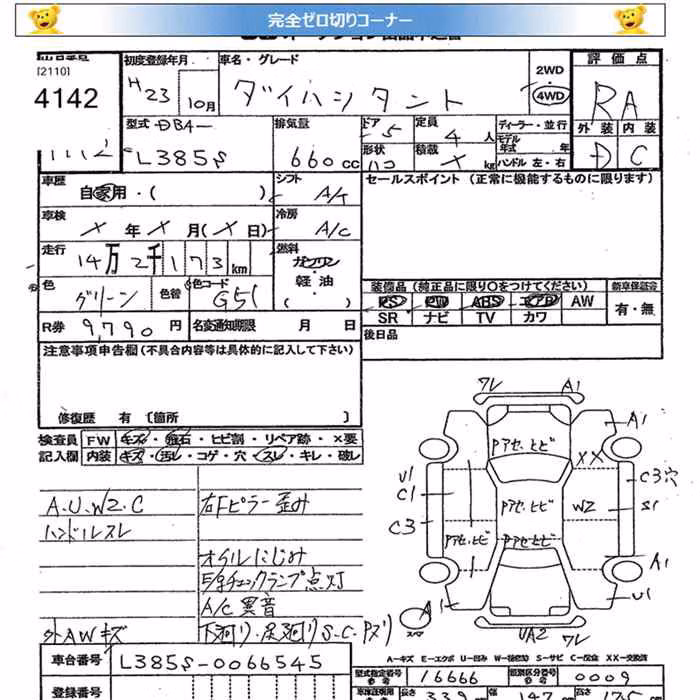 完全ゼロ切りコーナー
[2110]
4142
初度登録年月
H23 10月
車名・グレード
ダイハツ タント
2WD
4WD
評価点
RA
外装 内装
D C
型式 DBA-
L385S
排気量
660 cc
ドア 5
形状 ハコ
定員 4 人
積載 X kg
ディーラー・並行
モデル年式 年
ハンドル 左・右
車歴
自家用・( )
シフト
A/T
車検
X 年 X 月(X 日)
冷房
A/C
走行
14万2千173km
燃料
ガソリン
軽油
( )
色
グリーン
色替
色コード
G51
R券 9,790 円
名変通知期限 月 日
セールスポイント (正常に機能するものに限ります)
装備品 (純正品に限り○をつけてください)
新車保証書
PS PW ABS エアB AW
SR ナビ TV カワ
有・無
後日品
注意事項申告欄 (不具合内容等は具体的に記入して下さい)
修復歴 有 〔箇所 〕
検査員記入欄
FW キズ・飛石・ヒビ割・リペア跡・×要
内装 キズ・汚レ・コゲ・穴・スレ・キレ・破レ
A.U.W2.C
ハンドルスレ
外AWキズ
右Fピラー歪み
オイルにじみ
E/gチェックランプ点灯
A/C異音
下廻り・足廻りS・C・Pヌリ
ワレ A1
A1
Pアセ.ヒビ
XX
U1
C1
C3穴
Pアセ.ヒビ
W2
S1
C3
Pアセ.ヒビ
Pアセ.ヒビ
A1
A1
U1
A
スペア
UA2 ワレ
A―キズ E―エクボ U―凹み W―補修跡 S―サビ C―腐食 XX―交換済
車台番号 L385S-0066545
型式指定番号 16666
類別区分番号 0009
登録番号
長さ 339
幅 147
高さ 175